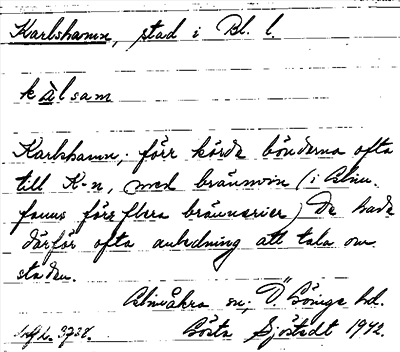 Karlshamn, stad i Bl. l.
kàlsam
Karlshamn; förr körde bönderna ofta
till K-n, med brännvin (i Alm.
fanns förr flera brännerier) De hade
därför ofta anledning att tala om
staden.
Almåkra sn; Ö. Göinge hd.
Gösta Sjöstedt 1942.